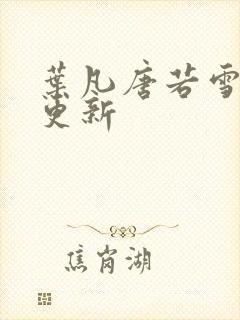 葉凡唐若雪
更新
焦岗湖